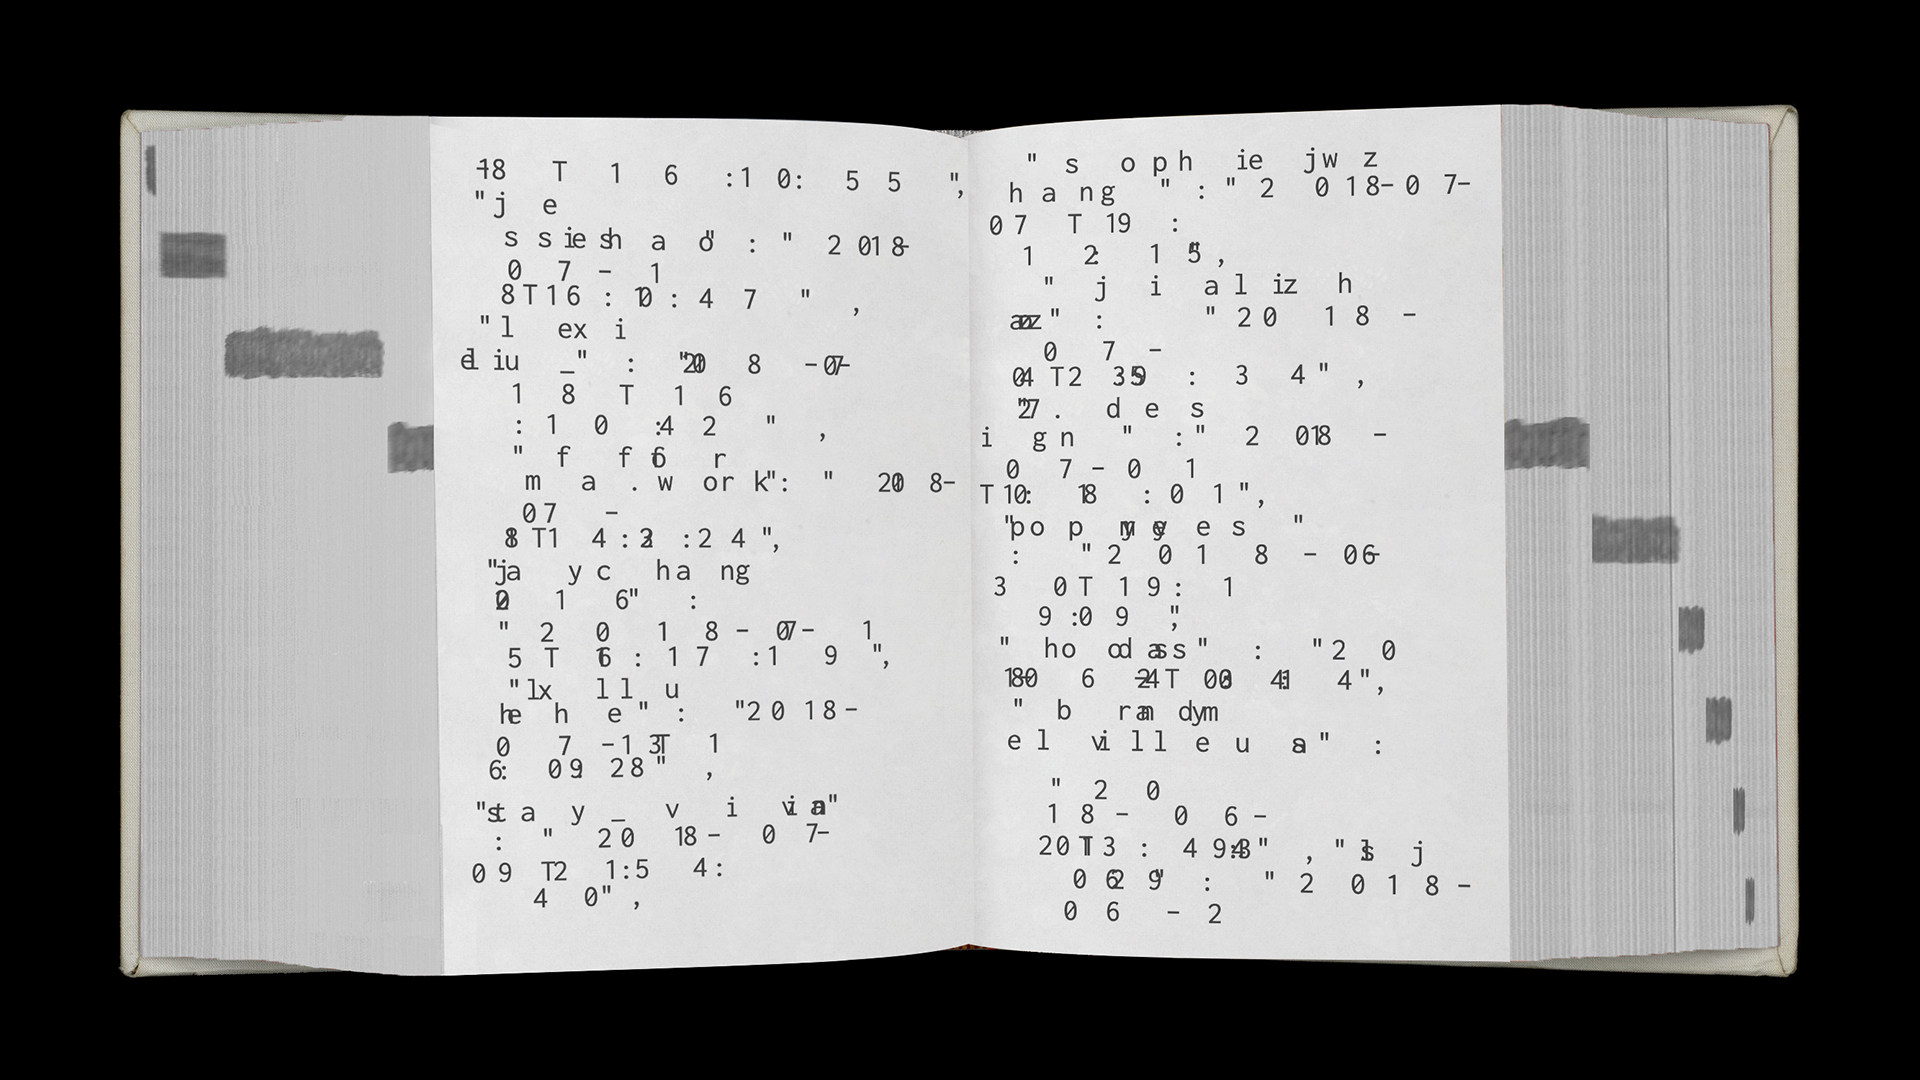 -18 T 1 6 :1 0: 5 5 ",
"j e
s s ie sh a d" : " 2 018-
0 7 - 1
8T16 : 10 : 4 7 " ,
"l ex i
d iu _" : "20 8 -07-
1 8 T 1 6
: 1 0 :4 2 " ,
" f f6 r
m a . w or k": " 20 8-
07 -
18 T1 4 : 2 :2 4 ",
"ja y c ha ng
2 0 1 6" :
" 2 0 1 8 - 07- 1
5 T 16 : 1 7 :1 9 ",
"lx l l u
he h e" : "2 0 18-
0 7 -1 3T 1
6: 09: 28" ,
"st a y _ v i vian"
: " 20 18- 0 7-
09 T2 1:5 4:
4 0" ,
" s o p h ie jw z
h a ng " : " 2 0 18- 0 7-
07 T 19 :
1 2: 1 5" ,
" j i a l iz h
" : " 20 1 8 -
0 7 -
04 T2 3 : 3 4" ,
"27 . d e s
i gn " :" 2 018 -
0 7 - 0 1
T 10: 18 : 0 1",
"po p my ey e s "
: " 2 0 1 8 - 06-
3 0 T 1 9 : 1
9 :0 9 ",
" ho od ass" : "2 0
18-0 6 -24T 4",
" b ran dym
el vi ll e u sa" :
" 2 0
1 8 - 0 6 -
20T 3 : 4 9:43" , "ls j
0 629" : " 2 0 1 8 -
0 6 - 2